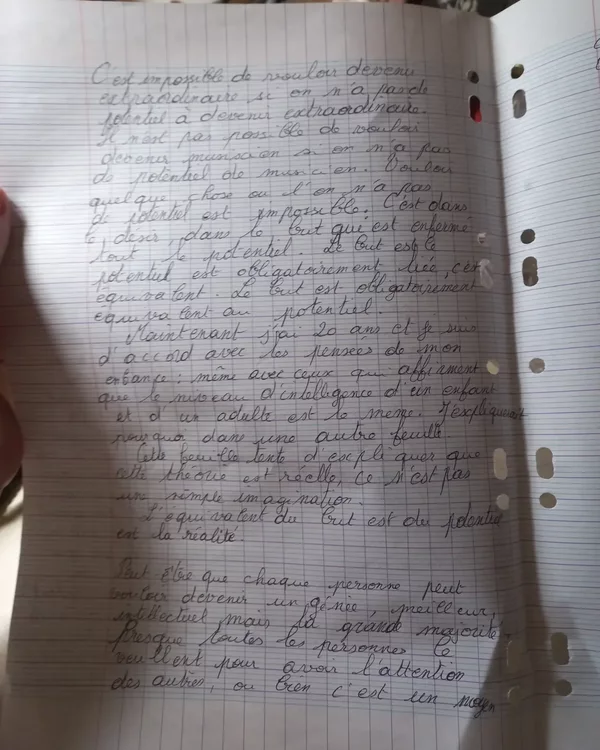 C'est impossible de vouloir devenir
extraordinaire si on n'a pas de
potentiel a devenir extraordinaire.
Il n'est pas possible de vouloir
devenir musicien si on n'a pas
de potentiel de musicien. Vouloir
quelque chose ou l'on n'a pas
de potentiel est impossible. C'est dans
le désir, dans le but que est enfermé
tout le potentiel. Le but est le
potentiel est obligatoirement liée, c'est
équivalent. Le but est obligatoirement
équivalent au potentiel.
Maintenant j'ai 20 ans et je suis
d'accord avec les pensées de mon
enfance; même avec ceux qui affirment
que le niveau d'intelligence d'un enfant
et d'un adulte est le même. J'expliquerait
pourquoi dans une autre feuille.
Cette feuille tente d'expliquer que
cette théorie est réelle, ce n'est pas
une simple imagination.
L'équivalent du but est du potentiel
est la réalité.
Peut être que chaque personne peut
vouloir devenir un génie, meilleur,
intellectuel mais la grande majorité,
Presque toutes les personnes le
veullent pour avoir l'attention
des autres, ou bien c'est un moyen